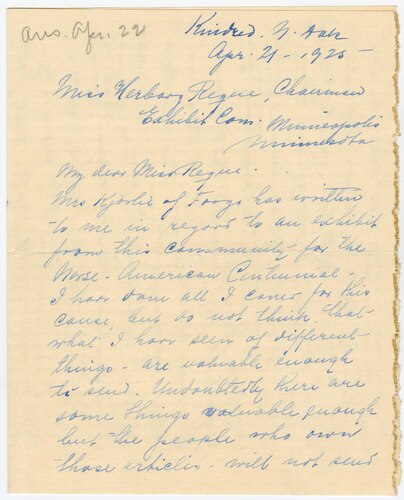 ans. Apr. 22
Kindred, N. Dak
Apr. 21 - 1925 -
Miss Herborg Reque, Chairman
Exhibit Com. Minneapolis
Minnesota
My dear Miss Reque.
Mrs Kjorlie of Fargo has written
to me in regard to an exhibit
from this community for the
Norse - American Centennial -
I have done all I can for this
cause, but do not think that
what I have seen of different
things - are valuable enough
to send. Undoubtedly there are
some things valuable enough
but the people who own
those articles - will not send